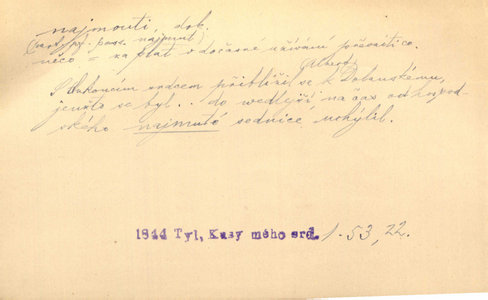 najmouti, dok.
(part. pf. pass. najmut)
něco = za plat v dočasné užívání převzíti co.
S tlukoucím srdcem přiblížil se k Dolanskému,
jenžto se byl .. do wedlejší na čas od hospod-
ského najmuté sednice uchýlil.
1844 Tyl, Kusy mého srd. 1. 53, 22.